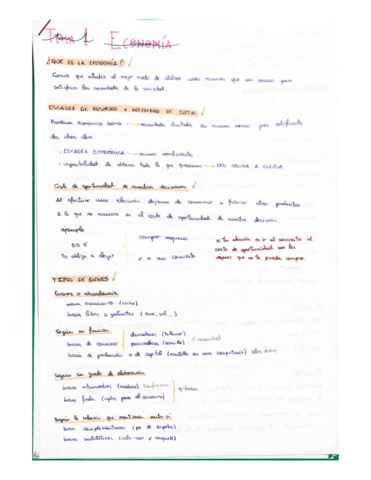 Tema 1 ECONOMÍA
¿QUÉ ES LA ECONOMÍA?
Ciencia que estudia el mejor modo de utilizar unos recursos que son escasos para
satisfacer las necesidades de la sociedad.
ESCASEZ DE RECURSOS Y NECESIDAD DE ELEGIR
Problema económico básico → necesidades ilimitadas en recursos escasos para satisfacerlas
dos ideas clave:
. ESCASEZ ECONÓMICA → recursos insuficientes
. imposibilidad de obtener todo lo que queremos → NOS OBLIGA A ELEGIR
Coste de oportunidad de nuestras decisiones
Al efectuar una elección dejamos de consumir o fabricar otros productos
A lo que se renuncia es el coste de oportunidad de nuestra decisión.
ejemplo
comprar vaqueros
50 €
Te obliga a elegir
o ir a un concierto
si tu elección es ir al concierto el
coste de oportunidad son los
vaqueros que no te puedes comprar.
TIPOS DE BIENES
Escasos o abundancia
bienes económicos (coche)
bienes libres o gratuitos (aire, sol...)
Según su función
bienes de consumo
duraderos (televisor)
perecederos (comida)
necesidad
bienes de producción o de capital (martillo en una carpintería) otros bienes
Según su grado de elaboración
bienes intermedios (madera)
bienes finales (aptos para el consumo)
Según la relación que mantienen entre sí
bienes complementarios (par de zapatos)
bienes sustitutivos